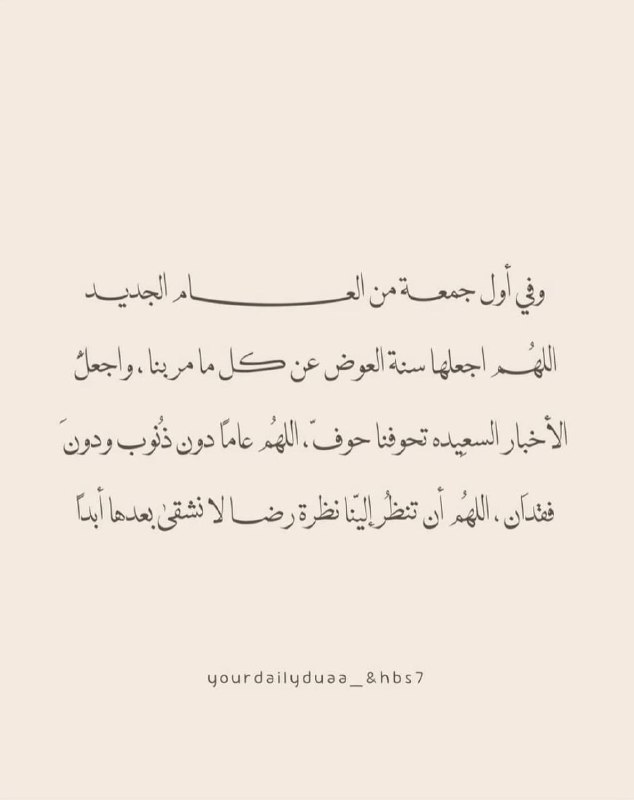 وفي أول جمعـة من العــــــــام الجديـد
اللهُـم اجعلها سنة العوض عن كـل ما مر بنا ، واجعلْ
الأخبار السعيِده تحوفنا حوفّ، اللهُم عامًا دون ذُنوب ودونَ
فقدَان ، اللهُم أن تنظرُ إليّنا نظرة رضـا لا نشقىٰ بعدها أبداً
yourdailyduaa_&hbs7